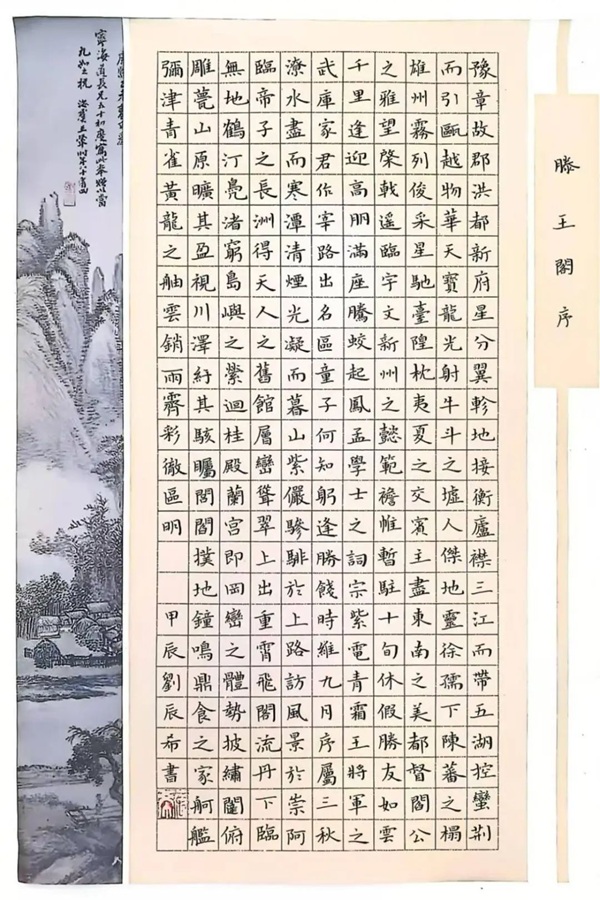 滕王閣序
豫章故郡洪都新府星分翼軫地接衡廬襟三江而帶五湖控蠻荊
而引甌越物華天寶龍光射牛斗之墟人傑地靈徐孺下陳蕃之榻
雄州霧列俊采星馳臺隍枕夷夏之交賓主盡東南之美都督閻公
之雅望棨戟遙臨宇文新州之懿範襜帷暫駐十旬休假勝友如雲
千里逢迎高朋滿座騰蛟起鳳孟學士之詞宗紫電青霜王將軍之
武庫家君作宰路出名區童子何知躬逢勝餞時維九月序屬三秋
潦水盡而寒潭清煙光凝而暮山紫儼驂騑於上路訪風景於崇阿
臨帝子之長洲得天人之舊館層巒聳翠上出重霄飛閣流丹下臨
無地鶴汀鳧渚窮島嶼之縈迴桂殿蘭宮即岡巒之體勢披繡闥俯
雕甍山原曠其盈視川澤紆其駭矚閭閻撲地鐘鳴鼎食之家舸艦
彌津青雀黃龍之舳雲銷雨霽彩徹區明 甲辰劉辰希書
寧海道長兄五十初度寫此奉贈以當
九如之祝 海虞王翬時年八十有四